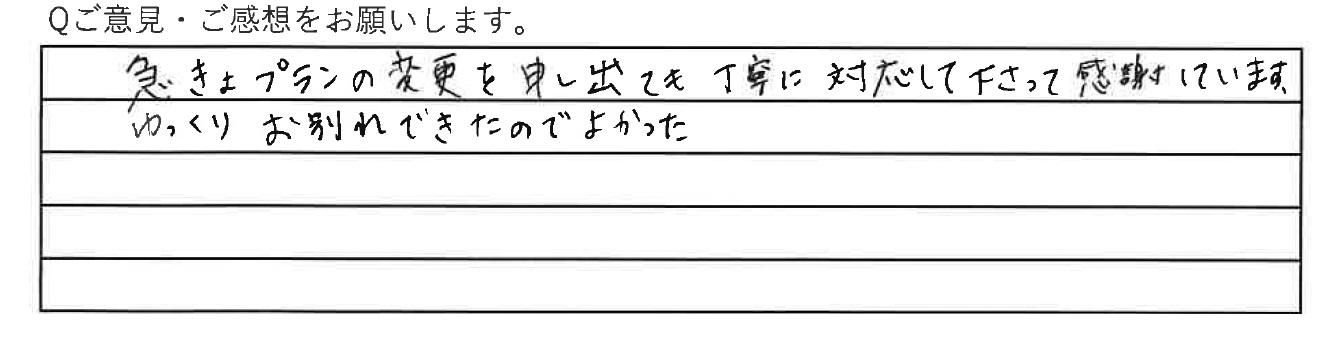 Qご意見・ご感想をお願いします。
急きょプランの変更を申し出ても丁寧に対応して下さって感謝しています
ゆっくりお別れできたのでよかった